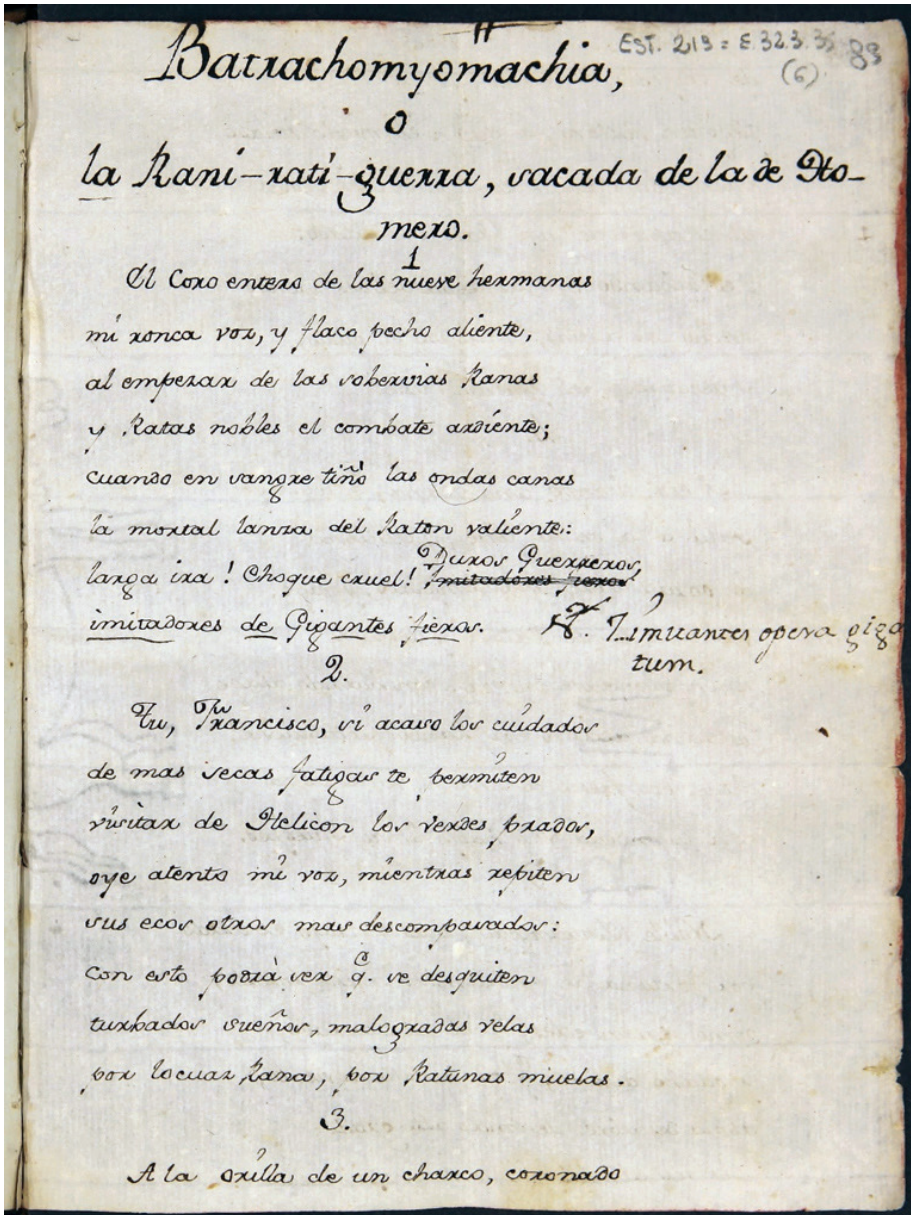 EST. 219 = E.32.3.35 89
(6)
Batrachomyomachia,
o
la Rani-rati-guerra, sacada de la de Ho-
mero.
1
El Coro entero de las nueve hermanas
mi ronca voz, y flaco pecho aliente,
al empezar de las sobervias Ranas
y Ratas nobles el combate ardiente;
cuando en sangre tiñó las ondas canas
la mortal lanza del Raton valiente:
larga ira! Choque cruel! Duros Guerreros,
Imitadores fieros
imitadores de Gigantes fieros.
imitantes opera giga
tum.
2.
Tu, Francisco, si acaso los cuidados
de mas secas fatigas te permiten
visitar de Helicon los verdes prados,
oye atento mi voz, mientras repiten
sus ecos otros mas descompasados:
con esto podrà ser q. se desquiten
turbados sueños, malogradas velas
por locuaz Rana, por Ratunas muelas.
3.
A la orilla de un charco, coronado